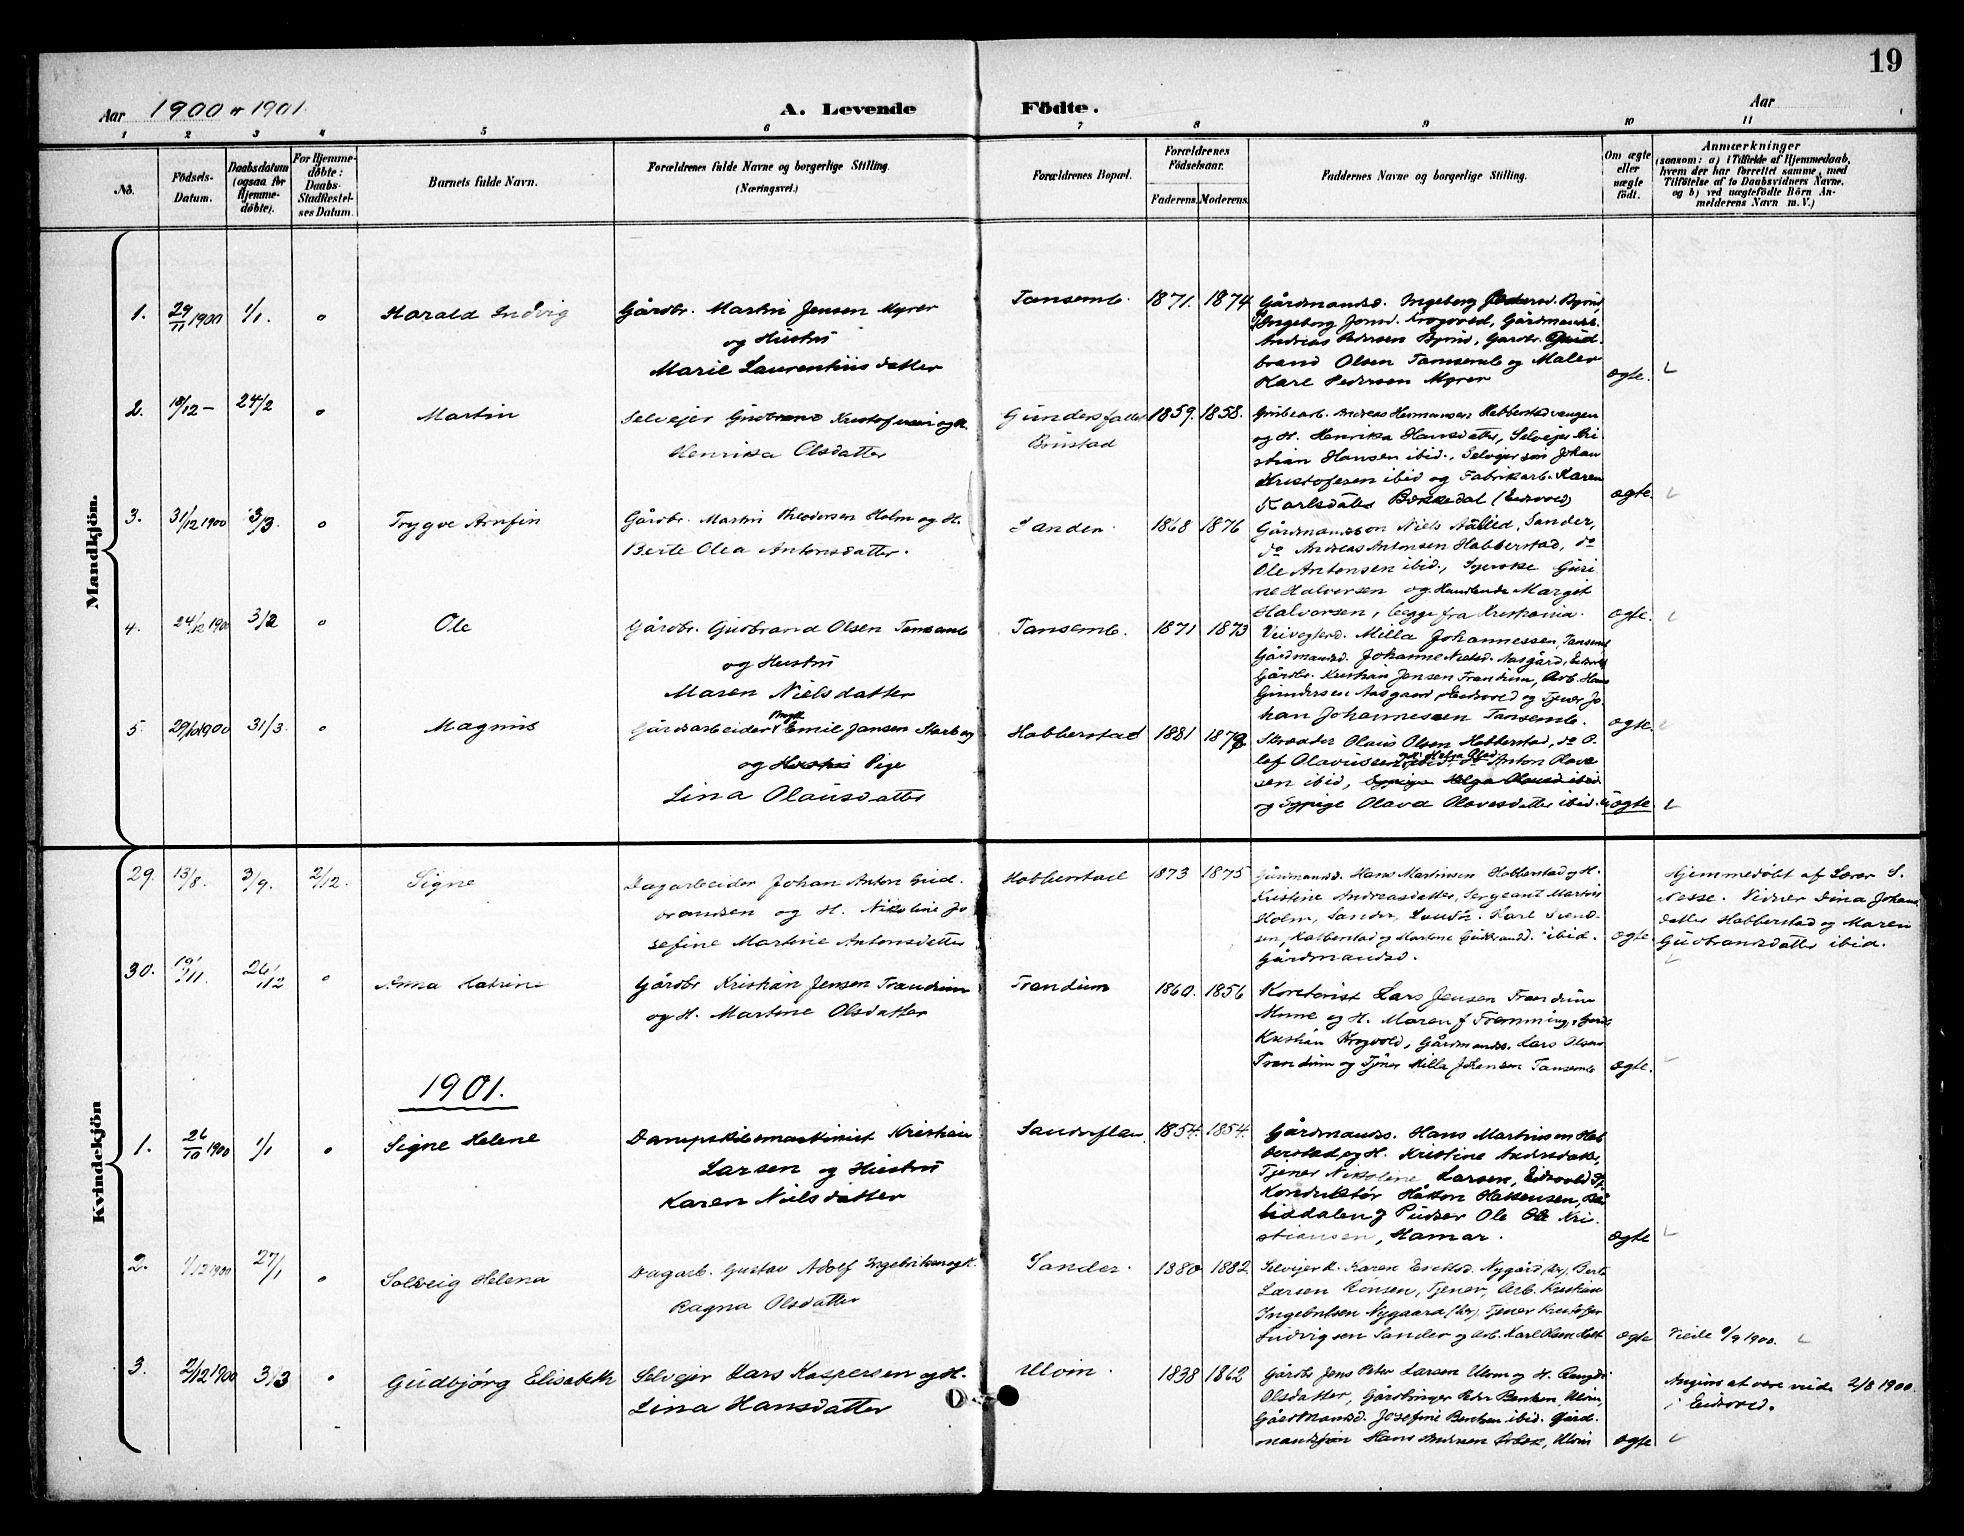 19
Aar 1900 & 1901.
A. Levende Födte.
Aar
1 2 3 4 5 6 7 8 9 10 11
No.
Födsels-Datum.
Daabsdatum (ogsaa for Hjemmedöbte).
For Hjemmedöbte: Daabs-Stadfæstelses Datum.
Barnets fulde Navn.
Forældrenes fulde Navne og borgerlige Stilling. (Næringsvei.)
Forældrenes Bopæl.
Forældrenes Födselsaar.
Faderens. Moderens.
Faddernes Navne og borgerlige Stilling.
Om ægte eller uægte födt.
Anmærkninger
(saasom: a) i Tilfælde af Hjemmedaab, hvem der har forrettet samme, med Tilföielse af to Daabsvidners Navne, og b) ved uægtefödte Börn Anmelderens Navn m. V.)
Mandkjön.
1. 29/11 1900 1/1. " Harald Ludvig
Gårdbr. Martin Jensen Myrer
og Hustru
Marie Laurentiusdatter
Tansemb. 1871. 1874
Gårdmandsd. Ingeborg Pedersd. Byrud,
Ingeborg Jonsd. Krogvold, Gårdmands.
Andreas Pedersen Byrud, Gardbr. Gud-
brand Olsen Tansemb og Maler
Karl Pedersen Myrer
ægte.
2. 18/12 - 24/2 " Martin
Selveier Gudbrand Kristofersen og H.
Henrika Olsdatter
Gundersfallet
Bonstad
1859. 1858.
Grubearb. Andreas Hermansen Habberstadvangen
og H. Henrika Hansdatter, Selveier Kri-
stian Hansen ibid., Selveiersøn Johan
Kristofersen ibid og Fabrikarb. Karen
Karlsdatter Bækkedal (Eidsvold)
ægte.
3. 31/12 1900 3/3. " Trygve Arnfin
Gårdbr. Martin Theodorsen Holm og H.
Berte Olea Antonsdatter.
Sander. 1868 1876
Gårdmandssøn Niels Aålid, Sander,
do Andreas Antonsen Habberstad, do
Ole Antonsen ibid., Syerske Guri-
ne Halvorsen og Handlende Margit
Halvorsen, begge fra Kristiania.
ægte.
4. 24/12 1900 3/2 " Ole
Gårdbr. Gudbrand Olsen Tansemb
og Hustru
Maren Nielsdatter
Tansemb. 1871 1873
Veivogterd. Milla Johannessen, Tansemb
Gårdmandsd. Johanne Nielsd. Aasgård, Eidsvold
Gårdbr. Kristian Jensen Trandum, Arb. Hans
Gundersen Aasgaard, Eidsvold og Tjener Jo-
han Johannesen Tansemb.
ægte.
5. 29/10 1900 31/3. " Magnus
Gårdsarbeider Emil Jansen
og Hustru Pige
Lina Olausdatter
Habberstad 1881 1878
Skræder Olaus Olsen Habberstad, do O-
lef Olavussen Anton Olave-
sen ibid, Sypige Helga Olausd ibid
og Sypige Olava Olavesdatter ibid.
uægte.
Kvindekjön
29. 13/8. 3/9. 2/12. Signe
Dagarbeider Johan Anton Gud-
brandsen og H. Nikoline Jo-
sefine Martine Antonsdatter
Habberstad 1873 1875
Gårdmandsd. Hans Martinsen Habberstad og H.
Kristine Andreasdatter, Sergeant Martin
Holm, Sander, Landh. Karl Svend-
sen, Habberstad og Martine Gudbrandsd. ibid.
Gårdmandsd.
ægte.
Hjemmedøbt af Lærer S.
Næsse. Vidner Dina Johans-
datter Habberstad og Maren
Gudbrandsdatter ibid.
30. 19/11. 26/12 " Anna Katrine
Gårdbr Kristian Jensen Trandum
og H. Martine Olsdatter
Trandum 1860. 1856
Lars Jensen Trandum
og H. Maren
Kristian Krogvold, Gårdmands. Lars Olsen
Trandum og Tjener Milla Johansen Tansemb
ægte.
1901.
1. 26/10 1900 1/1 " Signe Helene
Dampskibsmaskinist Kristian
Larsen og Hustru
Karen Nielsdatter
Sanderflaen 1854. 1854.
Gårdmands. Hans Martinsen Hab-
berstad, og H. Kristine Andersdatter,
Tjener Nikoline Larsen, Eidsvold St.
Konduktør Håkon
Pudser Ole Kri-
stiansen, Hamar.
ægte
2. 1/12 1900 27/1 " Solveig Helena
Dagarb. Gustav Adolf Ingebriktsen og H.
Ragna Olsdatter
Sander. 1880 1882.
Selveier K. Karen Nygård, Berte
Larsen Rønsen, Tjener, Arb. Kristian
Ingebretsen Nygaard, Tjener Kristofer
Ludvigsen Sander og Arb. Karl Olsen
ægte
Viede 9/9 1900.
3. 2/12 1900 3/3 " Gudbjørg Elisabeth
Selveier Lars Kaspersen og H.
Lina Hansdatter
Ulvin. 1838 1862
Gårdb. Jens Peter Larsen Ulvin og H. Rangdi
Olsdatter, Gårdbruger Peder Bentsen, Ulvin,
Gårdmandsd. Josefine Bentsen ibid. Gård-
mandssøn Hans Andersen Ulvin
ægte
Angives at være viede 2/8 1900.
i Eidsvold.